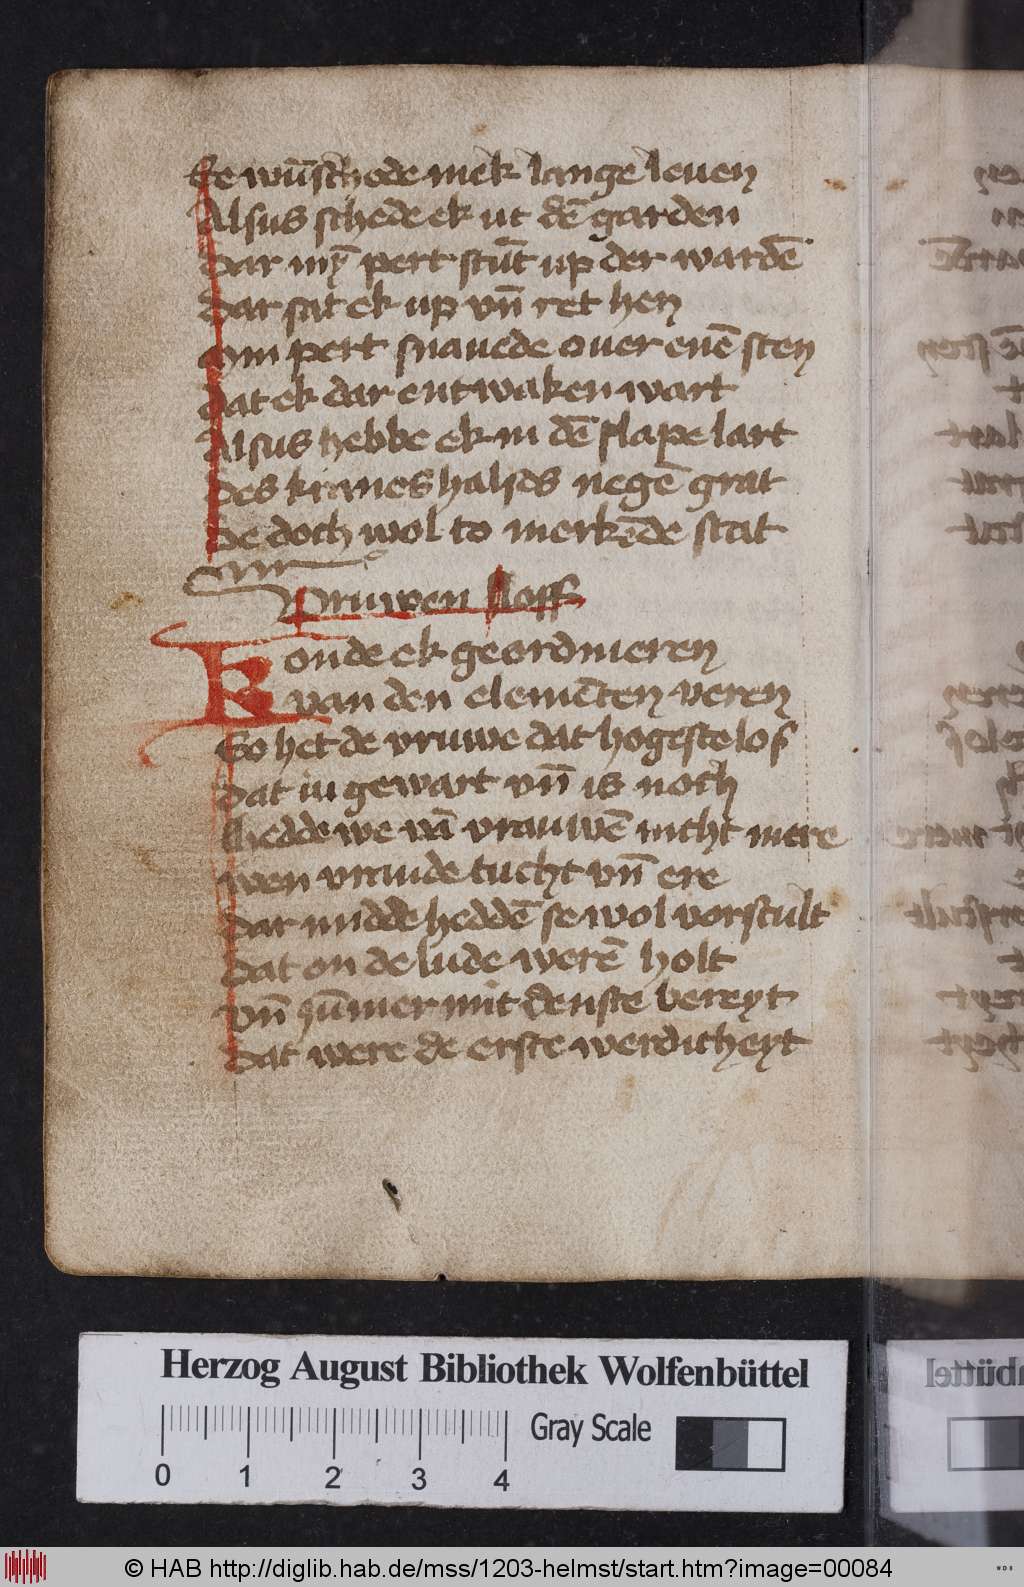 Se wūschode mek lange leven
Alsus schede ek ut dē garden
Dar mȳ pert stūt up der wardē
Dar sat ek up vn̄ ret hen
Myn pert snavede over enē sten
Dat ek dar entwaken wart
Alsus hebbe ek in dē slape lart
Des kranes halses negē grat
De doch wol to merkēde stat
Vruwen loff
Konde ek geordineren
van den elemēten veren
So het de vruwe dat hogeste lof
Dat iu gewart vn̄ is noch
Hedde we vā vrauwē nicht mere
Wen vraude tucht vn̄ ere
Dar midde heddē se wol vorscult
Dat on de lude werē holt
Vn̄ ȳmer mit denste bereyt
Dat were de erste werdicheyt
Herzog August Bibliothek Wolfenbüttel
0 1 2 3 4
Gray Scale
© HAB http://diglib.hab.de/mss/1203-helmst/start.htm?image=00084